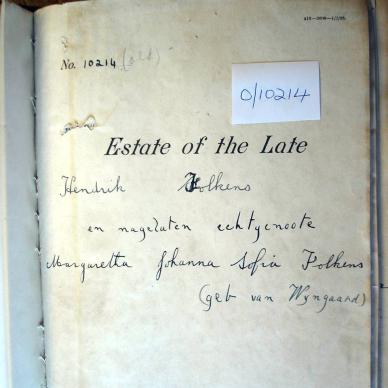 No. 10214 (old)
O/10214
Estate of the Late
Hendrik Folkens
en nagelaten echtgenoote
Margaretta Johanna Sofia Folkens
(geb van Wyngaard)